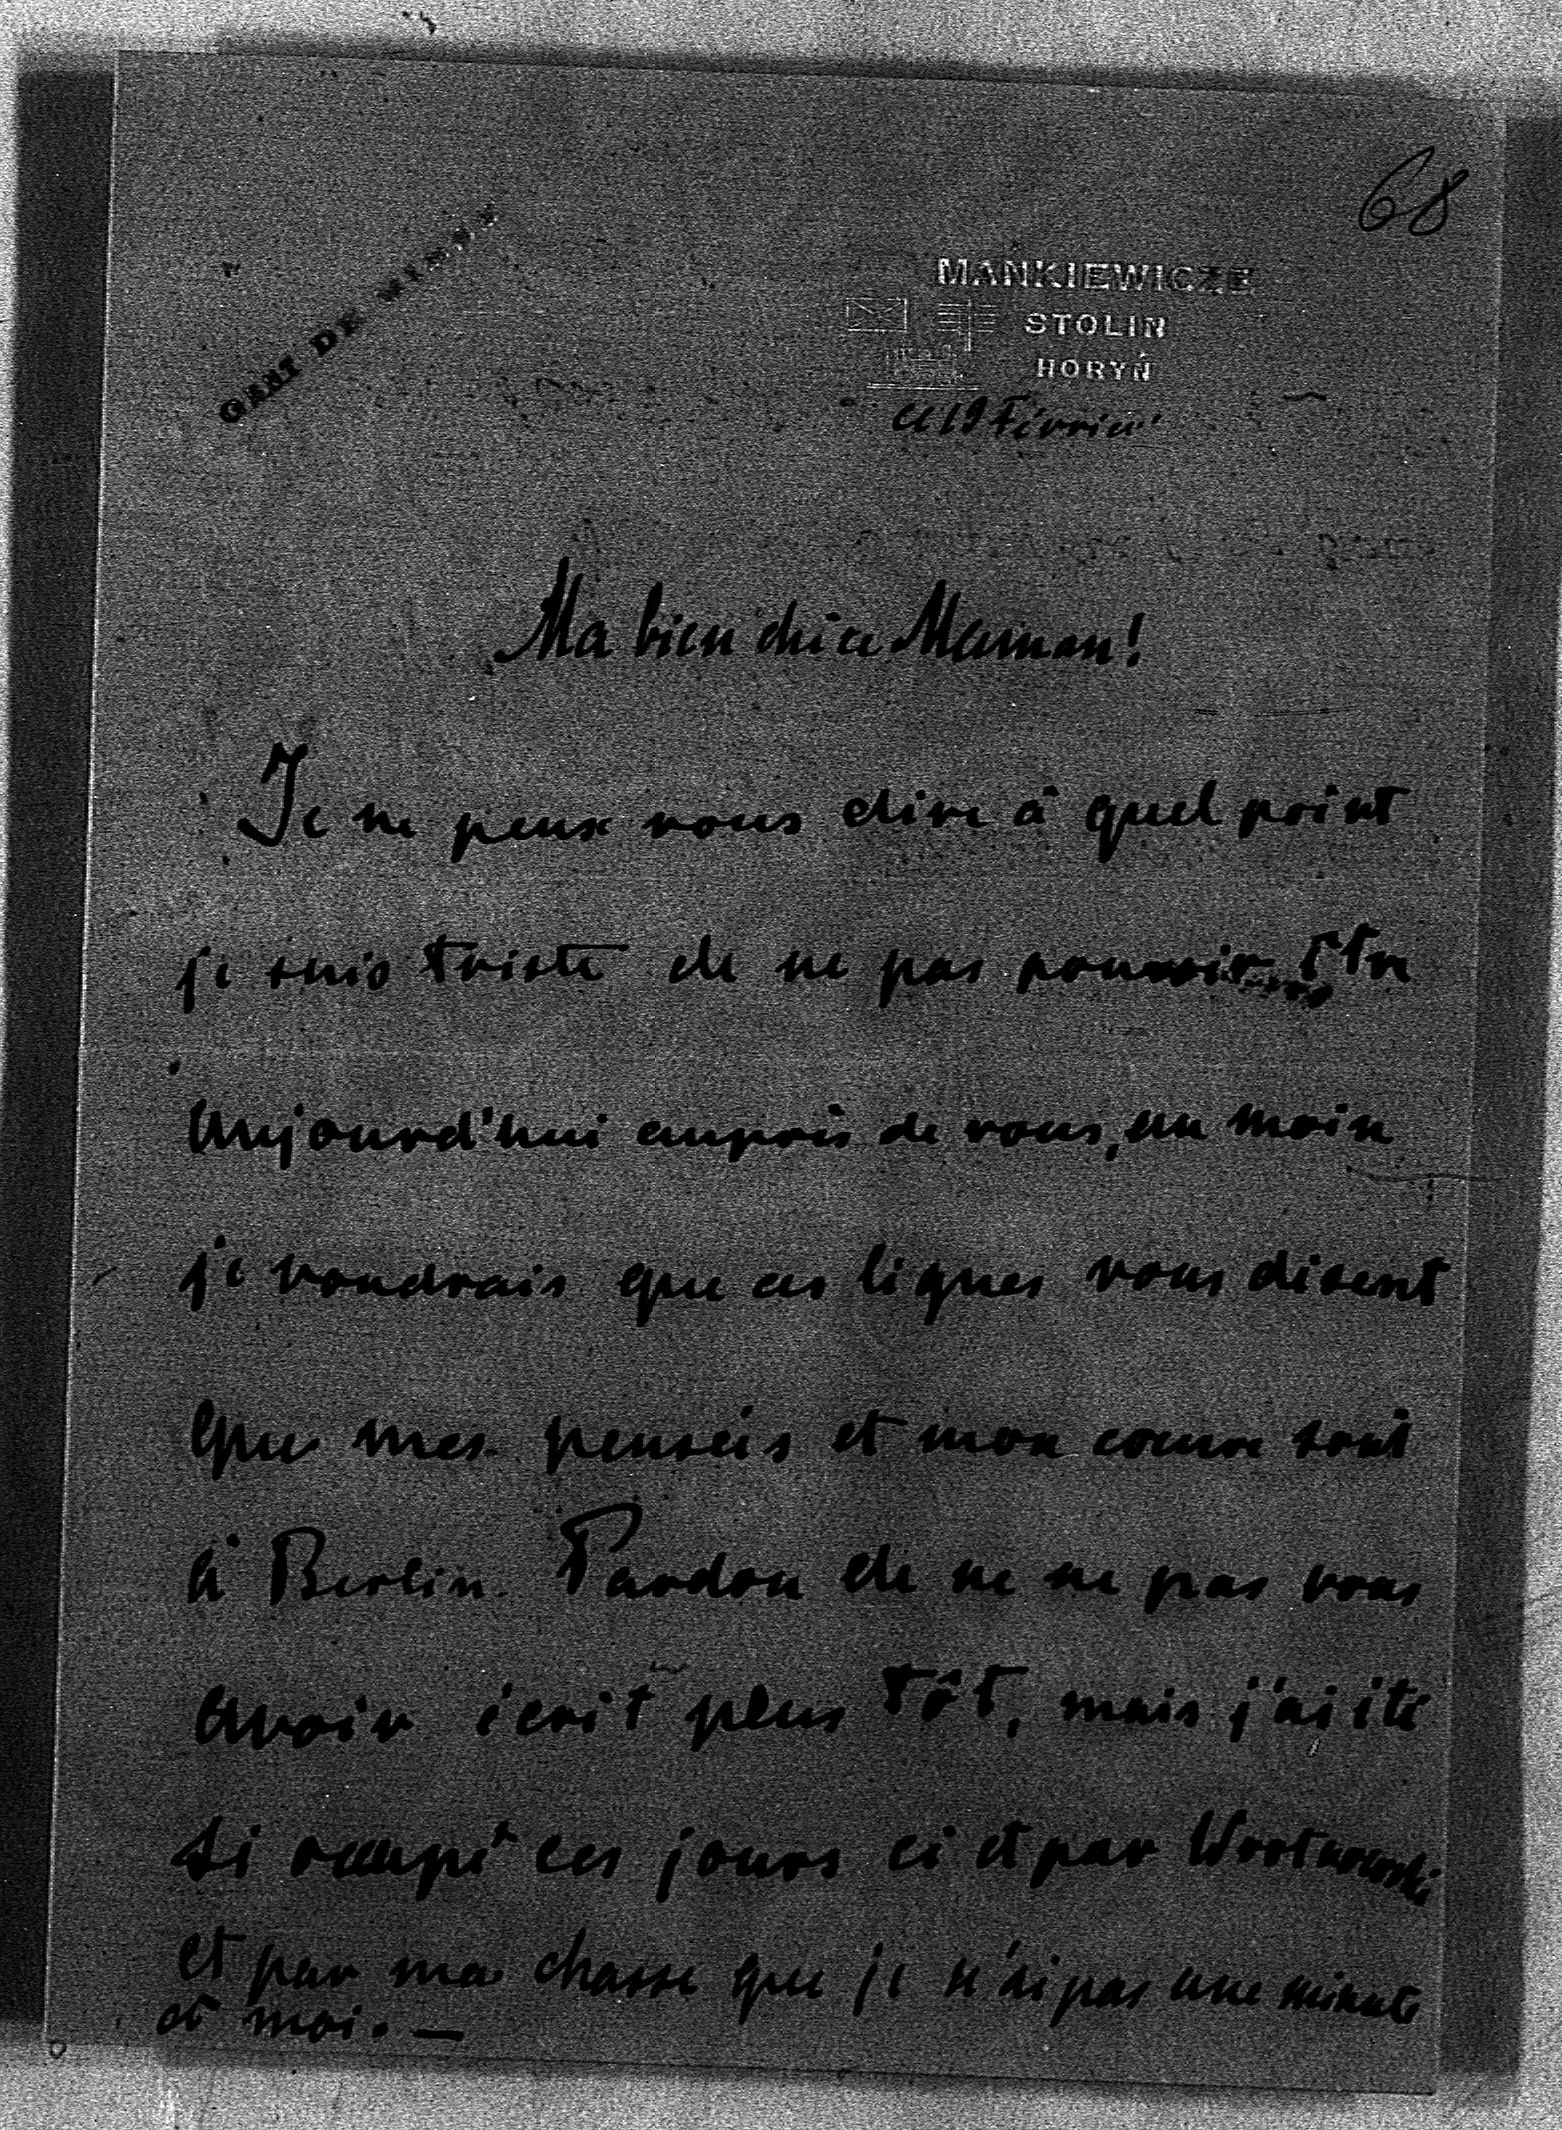 68
GART DE MINSK
MANKIEWICZE
STOLIN
HORYŃ
ce 19 Février
Ma bien chère Maman!
Je ne peux vous dire à quel point
je suis triste de ne pas pouvoir être
aujourd'hui auprès de vous, au moins
je voudrais que ces lignes vous disent
que mes pensées et mon coeur sont
à Berlin. Pardon de ne ne pas vous
avoir écrit plus tôt, mais j'ai été
si occupé ces jours ci et par
et par ma chasse que je n'ai pas une minute
à moi. —